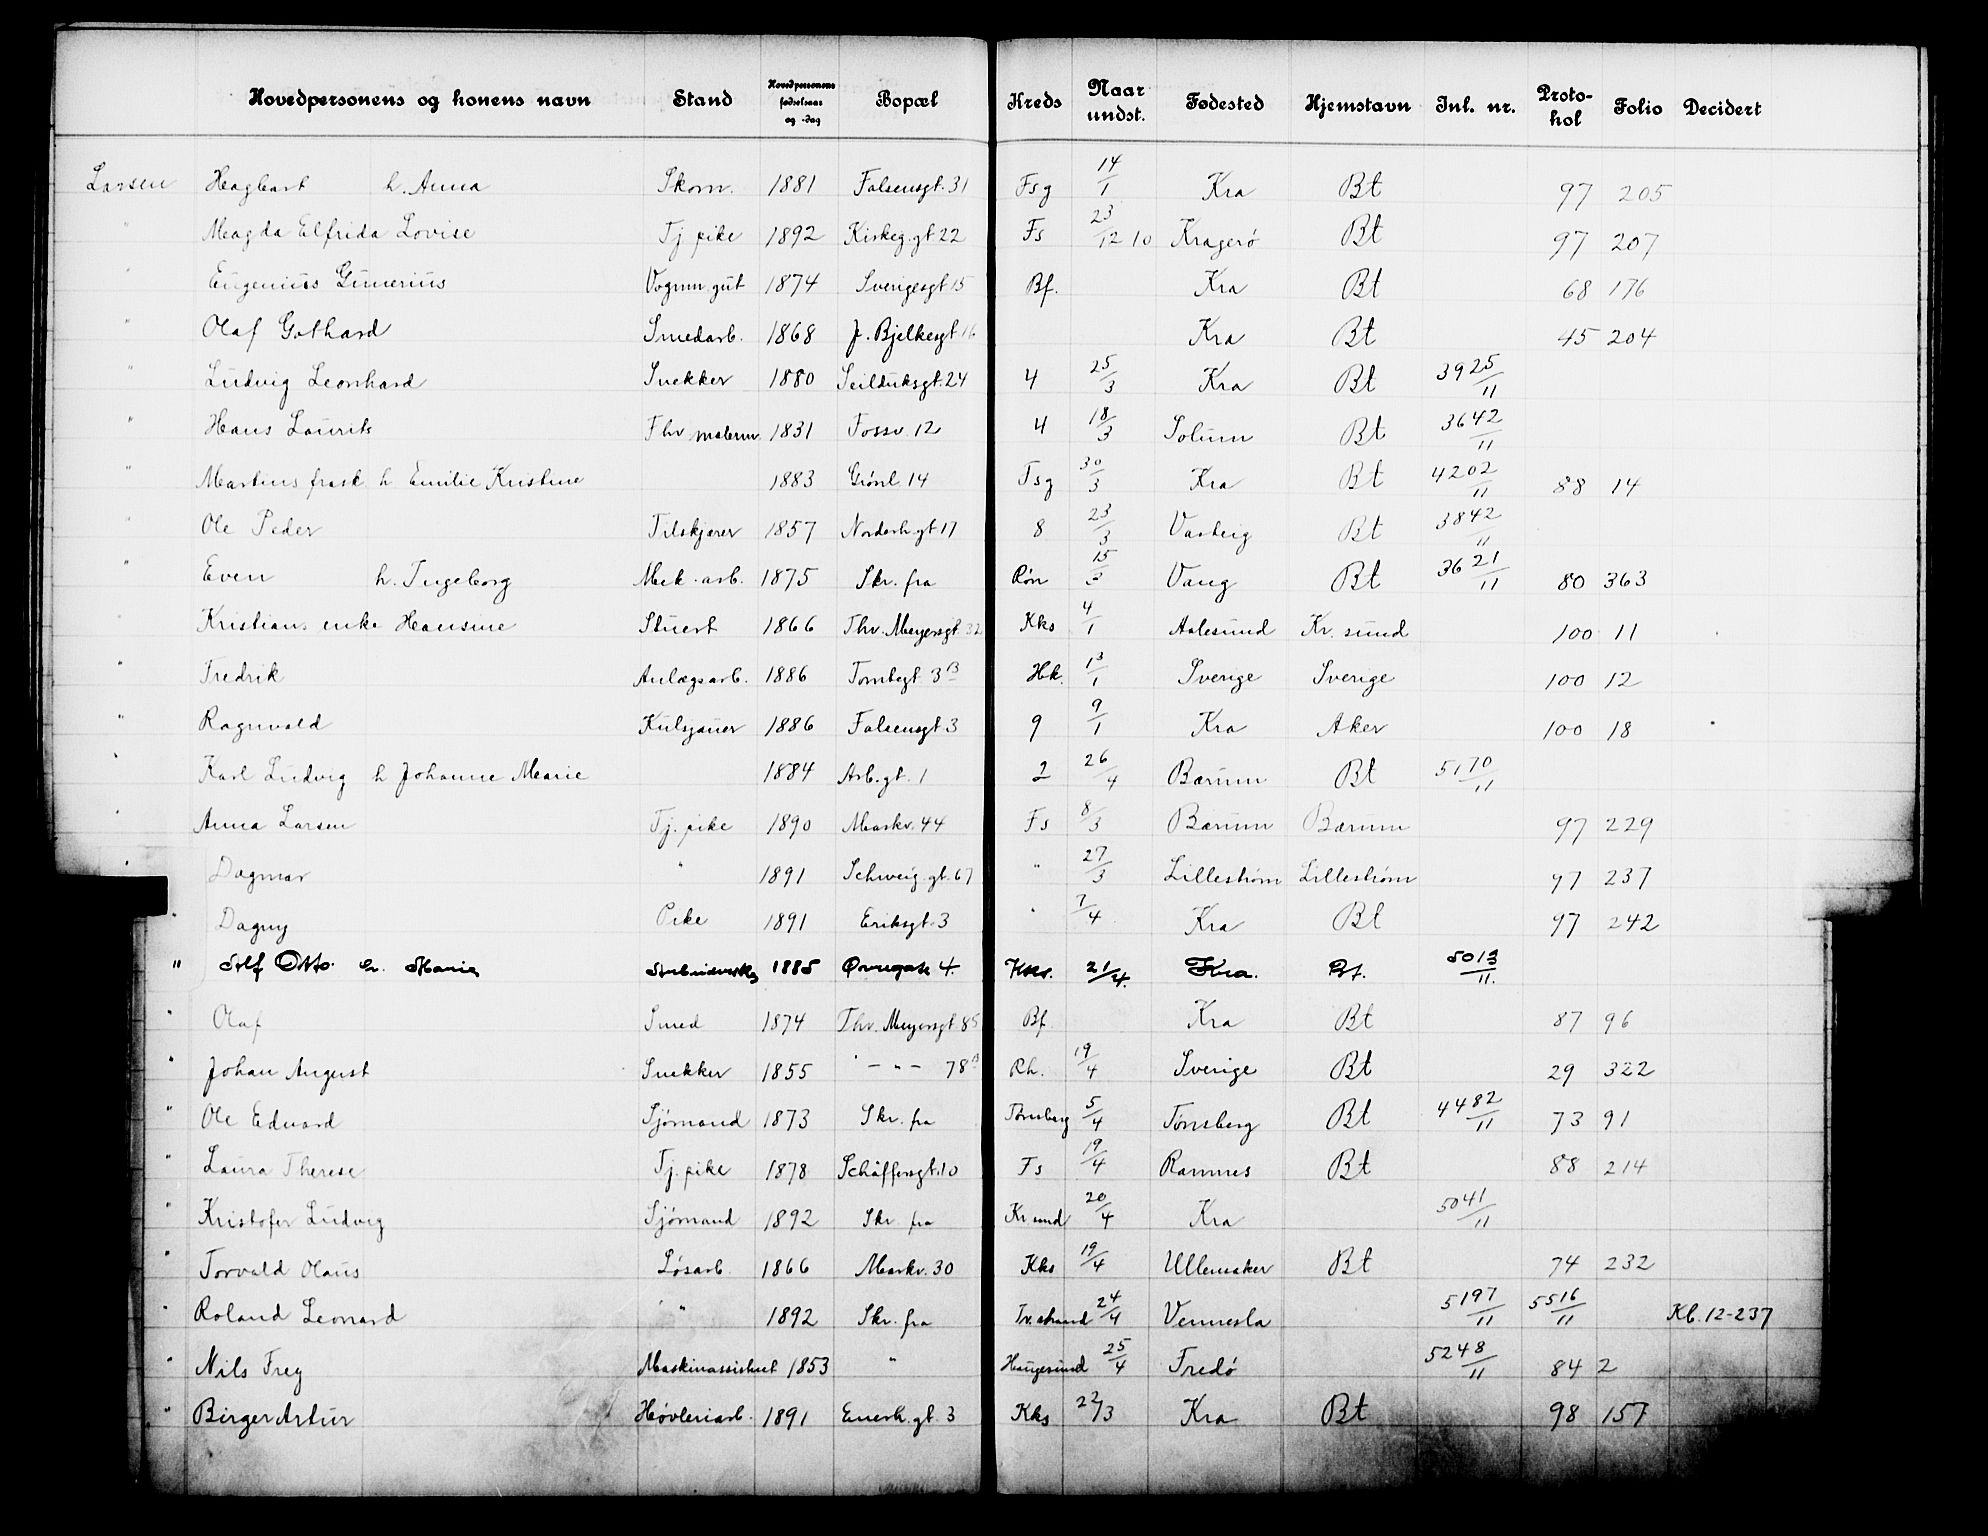 Hovedpersonens og konens navn Stand Hovedpersonens fødselsaar og -dag Bopæl Kreds Naar undst. Fødested Hjemstavn Inl. nr. Proto-kol Folio Decidert
Larsen Hagbart h. Anna Skom. 1881 Falsensgt. 31 Fsg 14/1 Kra Bt 97 205
" Magda Elfrida Lovise Tj. pike 1892 Kirkeg. gt 22 Fs 23/12 10 Kragerø Bt 97 207
" Eugenius Gunerius Vognm. gut 1874 Sverigesgt 15 Bf. Kra Bt 68 176
" Olaf Gothard Smedarb. 1868 J. Bjelkesgt 16 Kra Bt 45 204
" Ludvig Leonhard Snekker 1880 Seilduksgt. 24 4 25/3 Kra Bt 3925/11
" Hans Laurits Fhv malerm. 1831 Fossv. 12 4 18/3 Solum Bt 3642/11
" Martins frask. h Emilie Kristine 1883 Grønl. 14 Fsg 30/3 Kra Bt 4202/11 88 14
" Ole Peder Filskjærer 1857 Norderh. gt 17 8 23/3 Varteig Bt 3842/11
" Even h. Ingeborg Mek. arb. 1875 Skr. fra Røn 15/3 Vang Bt 3621/11 80 363
" Kristians enke Hansine Stuert 1866 Thv. Meyersgt 32 Kks 4/1 Aalesund Kr. sund 100 11
" Fredrik Anlægsarb. 1886 Tomtegt 3 B Hk. 13/1 Sverige Sverige 100 12
" Ragnvald Kulsjauer 1886 Falsensgt. 3 9 9/1 Kra Aker 100 18
" Karl Ludvig h Johanne Marie 1884 Arb. gt. 1 2 26/4 Bærum Bt 5170/11
" Anna Larsen Tj. pike 1890 Markv. 44 Fs 8/3 Bærum Bærum 97 229
" Dagmar " 1891 Schweig. gt. 67 " 27/3 Lillestrøm Lillestrøm 97 237
" Dagny Pike 1891 Eriksgt. 3 " 7/4 Kra Bt 97 242
" Alf Otto h. Marie 1885 Øvregate 4. 21/4. Kra. Bt. 5013/11.
" Olaf Smed 1874 Thv. Meyersgt 85 Bf. Kra Bt 87 96
" Johan August Snekker 1855 — " — 78 B Rh. 19/4 Sverige Bt 29 322
" Ole Edvard Sjømand 1873 Skr. fra Tønsberg 5/4 Tønsberg Bt 4482/11 73 91
" Laura Therese Tj. pike 1878 Schäffersgt. 10 Fs 19/4 Ramnes Bt 88 214
" Kristofer Ludvig Sjømand 1892 Skr. fra Kr sund 20/4 Kra 5041/11
" Torvald Olaus Løsarb. 1866 Markv. 30 Kks 19/4 Ullensaker Bt 74 232
" Roland Leonard " 1892 Skr. fra Tv. strand 24/4 Vennesla 5197/11 5516/11 Kb. 12-237
" Nils Frey Maskinassistent 1853 " Haugesund 25/4 Fredø 5248/11 84 2
" Birger Artur Høvleriarb. 1891 Enerh. gt. 3 Kks 22/3 Kra Bt 98 157